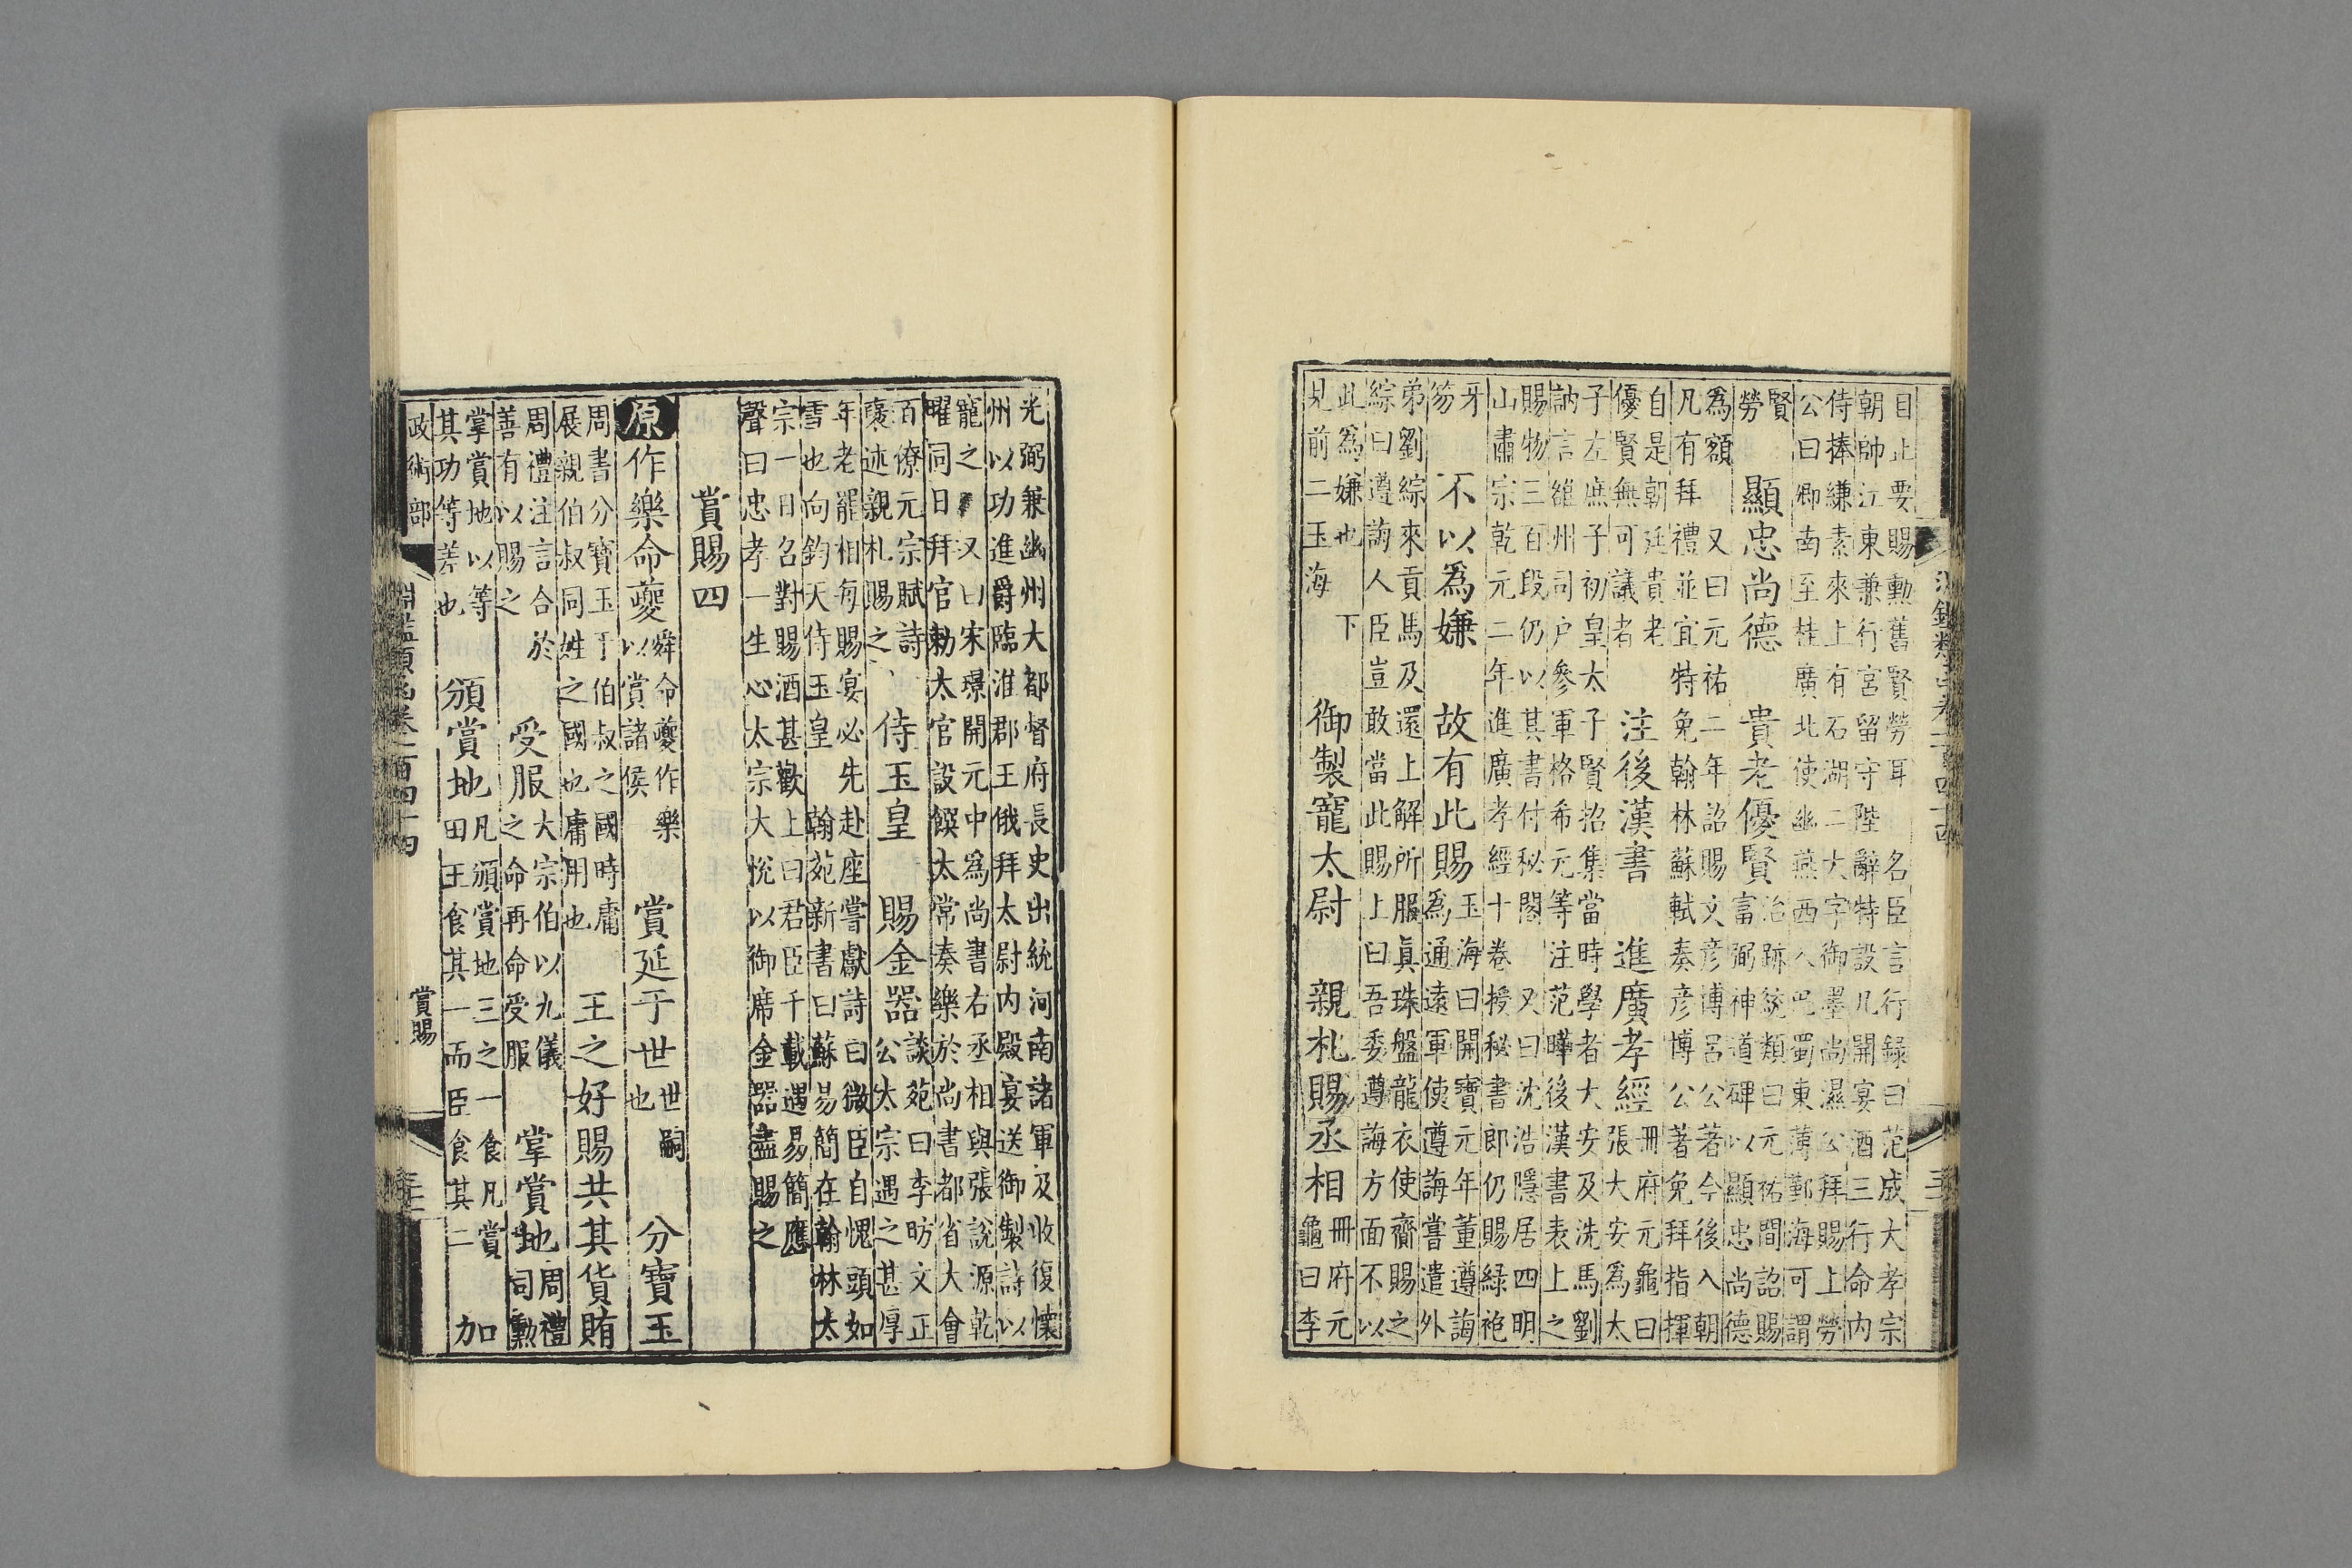 目止要賜勳舊賢勞耳　名臣言行録曰范成大孝宗
朝帥江東兼行宮留守陛辭特設几開宴酒三行命内
侍捧縑素來上有石湖二大字御墨尚濕公拜賜上勞
公曰卿南至桂廣北使幽燕西入巴蜀東薄鄞海可謂
賢勞
顯忠尚德
貴老優賢
治跡統類曰元祐間詔賜
富弼神道碑以顯忠尚德
爲額　又曰元祐二年詔賜文彦博呂公著今後入朝
凡有拜禮並宜特免翰林蘇軾奏彦博公著免拜指揮
自是朝廷貴老
優賢無可議者
注後漢書
進廣孝經
冊府元龜曰
張大安爲太
子左庶子初皇太子賢招集當時學者大安及洗馬劉
訥言雒州司户參軍格希元等注范曄後漢書表上之
賜物三百段仍以其書付秘閣　又曰沈浩隱居四明
山肅宗乾元二年進廣孝經十卷授秘書郎仍賜緑袍
牙
笏
不以爲嫌
故有此賜
玉海曰開寶元年董遵誨
爲通遠軍使遵誨嘗遣外
弟劉綜來貢馬及還上解所服眞珠盤龍衣使齎賜之
綜曰遵誨人臣豈敢當此賜上曰吾委遵誨方面不以
此爲嫌也　下
見前二玉海
御製寵太尉
親札賜丞相
冊府元
龜曰李
光弼兼幽州大都督府長史出統河南諸軍及收復懷
州以功進爵臨淮郡王俄拜太尉内殿宴送御製詩以
寵之　又曰宋璟開元中爲尚書右丞相與張說源乾
曜同日拜官勅太官設饌太常奏樂於尚書都省大會
百僚元宗賦詩
褒述親札賜之
侍玉皇
賜金器
談苑曰李昉文正
公太宗遇之甚厚
年老罷相每賜宴必先赴座嘗獻詩曰微臣自愧頭如
雪也向鈞天侍玉皇　翰苑新書曰蘇易簡在翰林太
宗一日召對賜酒甚歡上曰君臣千載遇易簡應
聲曰忠孝一生心太宗大悅以御席金器盡賜之
賞賜四
原作樂命夔
舜命夔作樂
以賞諸侯
賞延于世
世嗣
也
分寶玉
周書分寶玉于伯叔之國時庸
展親伯叔同姓之國也庸用也
王之好賜共其貨賄
周禮注言合於
善有以賜之
受服
大宗伯以九儀
之命再命受服
掌賞地
周禮
司勳
掌賞地以等
其功等差也
頒賞地
凡頒賞地三之一食凡賞
田王食其一而臣食其二
加
政術部
淵鑑類函卷一百四十四
賞賜